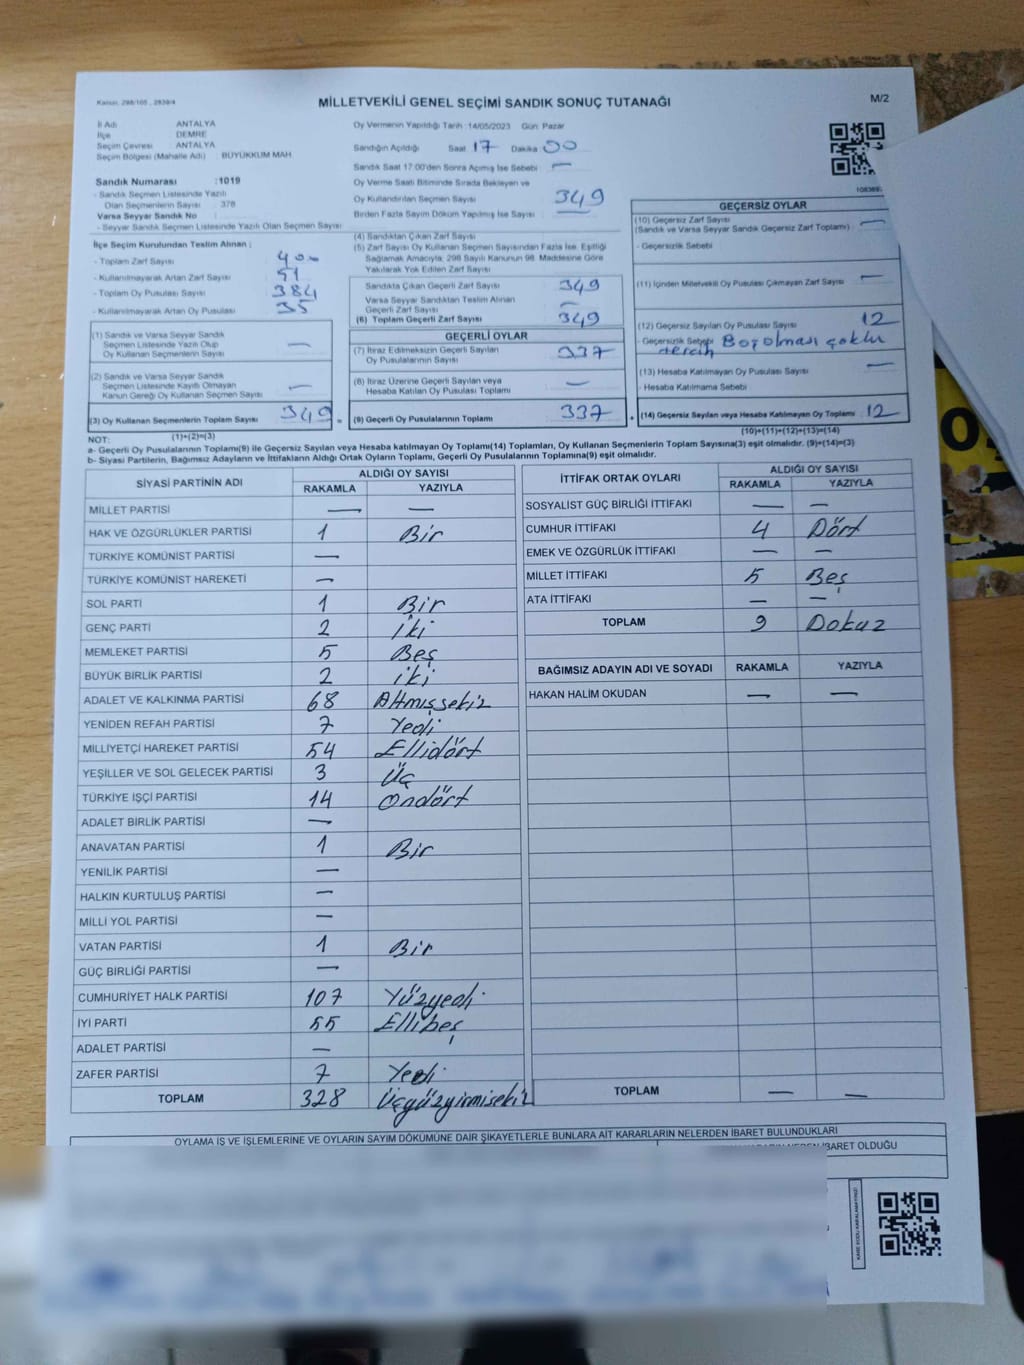 Kanun: 298/105 , 2839/4
MİLLETVEKİLİ GENEL SEÇİMİ SANDIK SONUÇ TUTANAĞI
M/2
İl Adı ANTALYA
İlçe DEMRE
Seçim Çevresi ANTALYA
Seçim Bölgesi (Mahalle Adı) : BÜYÜKKUM MAH
Sandık Numarası :1019
- Sandık Seçmen Listesinde Yazılı
Olan Seçmenlerin Sayısı : 378
Varsa Seyyar Sandık No
- Seyyar Sandık Seçmen Listesinde Yazılı Olan Seçmen Sayısı
İlçe Seçim Kurulundan Teslim Alınan :
- Toplam Zarf Sayısı 400
- Kullanılmayarak Artan Zarf Sayısı 51
- Toplam Oy Pusulası Sayısı 384
- Kullanılmayarak Artan Oy Pusulası 35
(1) Sandık ve Varsa Seyyar Sandık
Seçmen Listesinde Yazılı Olup
Oy Kullanan Seçmenlerin Sayısı —
(2) Sandık ve Varsa Seyyar Sandık
Seçmen Listesinde Kayıtlı Olmayan
Kanun Gereği Oy Kullanan Seçmen Sayısı —
(3) Oy Kullanan Seçmenlerin Toplam Sayısı 349 =
(1)+(2)=(3)
Oy Vermenin Yapıldığı Tarih :14/05/2023 Gün: Pazar
Sandığın Açıldığı Saat 17 Dakika 00
Sandık Saat 17:00'den Sonra Açılmış İse Sebebi —
Oy Verme Saati Bitiminde Sırada Bekleyen ve
Oy Kullandırılan Seçmen Sayısı 349
Birden Fazla Sayım Döküm Yapılmış İse Sayısı —
(4) Sandıktan Çıkan Zarf Sayısı
(5) Zarf Sayısı Oy Kullanan Seçmen Sayısından Fazla İse, Eşitliği
Sağlamak Amacıyla; 298 Sayılı Kanunun 98. Maddesine Göre
Yakılarak Yok Edilen Zarf Sayısı
Sandıkta Çıkan Geçerli Zarf Sayısı 349
Varsa Seyyar Sandıktan Teslim Alınan
Geçerli Zarf Sayısı —
(6) Toplam Geçerli Zarf Sayısı 349
GEÇERLİ OYLAR
(7) İtiraz Edilmeksizin Geçerli Sayılan
Oy Pusulalarının Sayısı 337
(8) İtiraz Üzerine Geçerli Sayılan veya
Hesaba Katılan Oy Pusulası Toplamı —
(9) Geçerli Oy Pusulalarının Toplamı 337 +
GEÇERSİZ OYLAR
(10) Geçersiz Zarf Sayısı
(Sandık ve Varsa Seyyar Sandık Geçersiz Zarf Toplamı) —
- Geçersizlik Sebebi
(11) İçinden Milletvekili Oy Pusulası Çıkmayan Zarf Sayısı —
(12) Geçersiz Sayılan Oy Pusulası Sayısı 12
- Geçersizlik Sebebi Boş olması çoklu
tercih
(13) Hesaba Katılmayan Oy Pusulası Sayısı —
- Hesaba Katılmama Sebebi
(14) Geçersiz Sayılan veya Hesaba Katılmayan Oy Toplamı 12
(10)+(11)+(12)+(13)=(14)
NOT:
a- Geçerli Oy Pusulalarının Toplamı(9) ile Geçersiz Sayılan veya Hesaba katılmayan Oy Toplamı(14) Toplamları, Oy Kullanan Seçmenlerin Toplam Sayısına(3) eşit olmalıdır. (9)+(14)=(3)
b- Siyasi Partilerin, Bağımsız Adayların ve İttifakların Aldığı Ortak Oyların Toplamı, Geçerli Oy Pusulalarının Toplamına(9) eşit olmalıdır.
SİYASİ PARTİNİN ADI ALDIĞI OY SAYISI
RAKAMLA YAZIYLA
MİLLET PARTİSİ — —
HAK VE ÖZGÜRLÜKLER PARTİSİ 1 Bir
TÜRKİYE KOMÜNİST PARTİSİ —
TÜRKİYE KOMÜNİST HAREKETİ —
SOL PARTİ 1 Bir
GENÇ PARTİ 2 İki
MEMLEKET PARTİSİ 5 Beş
BÜYÜK BİRLİK PARTİSİ 2 iki
ADALET VE KALKINMA PARTİSİ 68 Altmışsekiz
YENİDEN REFAH PARTİSİ 7 Yedi
MİLLİYETÇİ HAREKET PARTİSİ 54 Ellidört
YEŞİLLER VE SOL GELECEK PARTİSİ 3 Üç
TÜRKİYE İŞÇİ PARTİSİ 14 Ondört
ADALET BİRLİK PARTİSİ —
ANAVATAN PARTİSİ 1 Bir
YENİLİK PARTİSİ —
HALKIN KURTULUŞ PARTİSİ —
MİLLİ YOL PARTİSİ —
VATAN PARTİSİ 1 Bir
GÜÇ BİRLİĞİ PARTİSİ —
CUMHURİYET HALK PARTİSİ 107 Yüzyedi
İYİ PARTİ 55 Ellibeş
ADALET PARTİSİ —
ZAFER PARTİSİ 7 Yedi
TOPLAM 328 Üçyüzyirmisekiz
İTTİFAK ORTAK OYLARI ALDIĞI OY SAYISI
RAKAMLA YAZIYLA
SOSYALİST GÜÇ BİRLİĞİ İTTİFAKI — —
CUMHUR İTTİFAKI 4 Dört
EMEK VE ÖZGÜRLÜK İTTİFAKI — —
MİLLET İTTİFAKI 5 Beş
ATA İTTİFAKI — —
TOPLAM 9 Dokuz
BAĞIMSIZ ADAYIN ADI VE SOYADI RAKAMLA YAZIYLA
HAKAN HALİM OKUDAN — —
TOPLAM — —
OYLAMA İŞ VE İŞLEMLERİNE VE OYLARIN SAYIM DÖKÜMÜNE DAİR ŞİKAYETLERLE BUNLARA AİT KARARLARIN NELERDEN İBARET BULUNDUKLARI
İBARET OLDUĞU